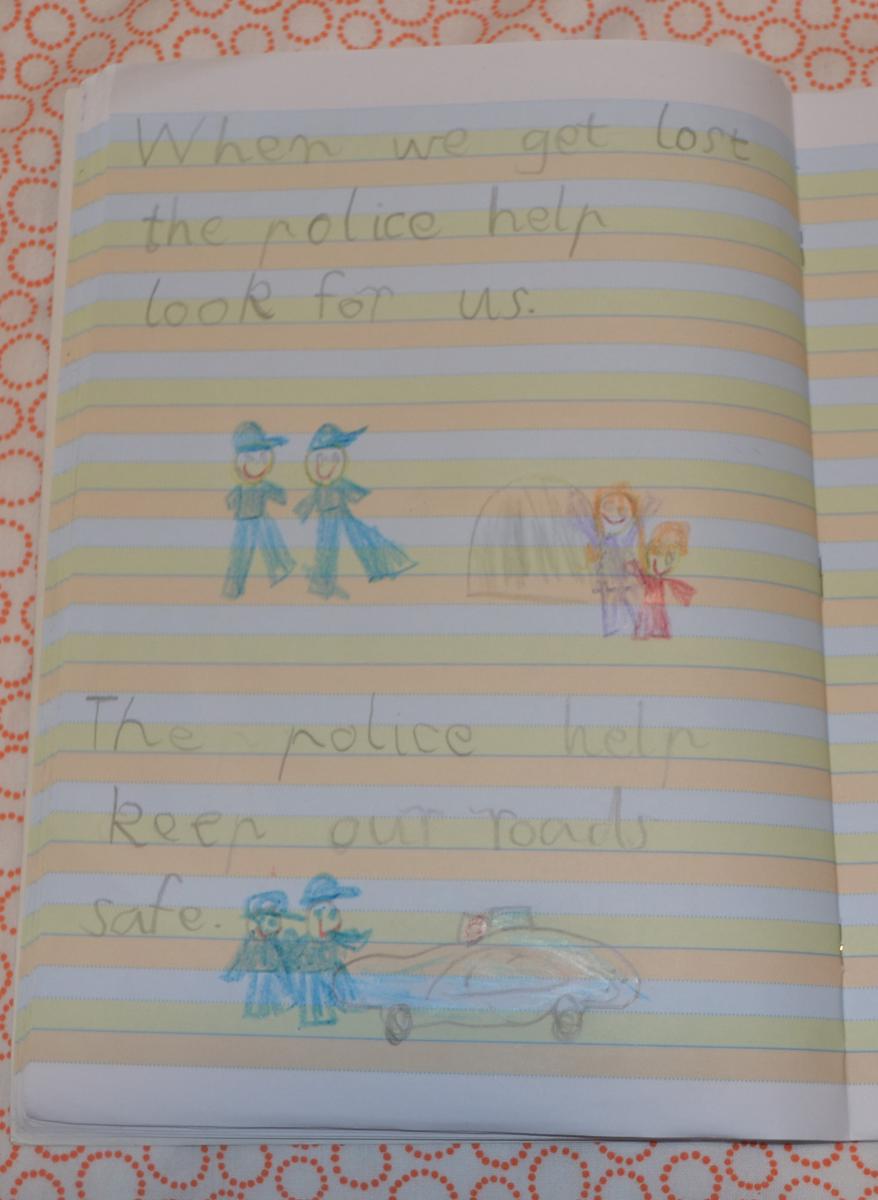 When we get lost
the police help
look for us.
The police help
keep our roads
safe.